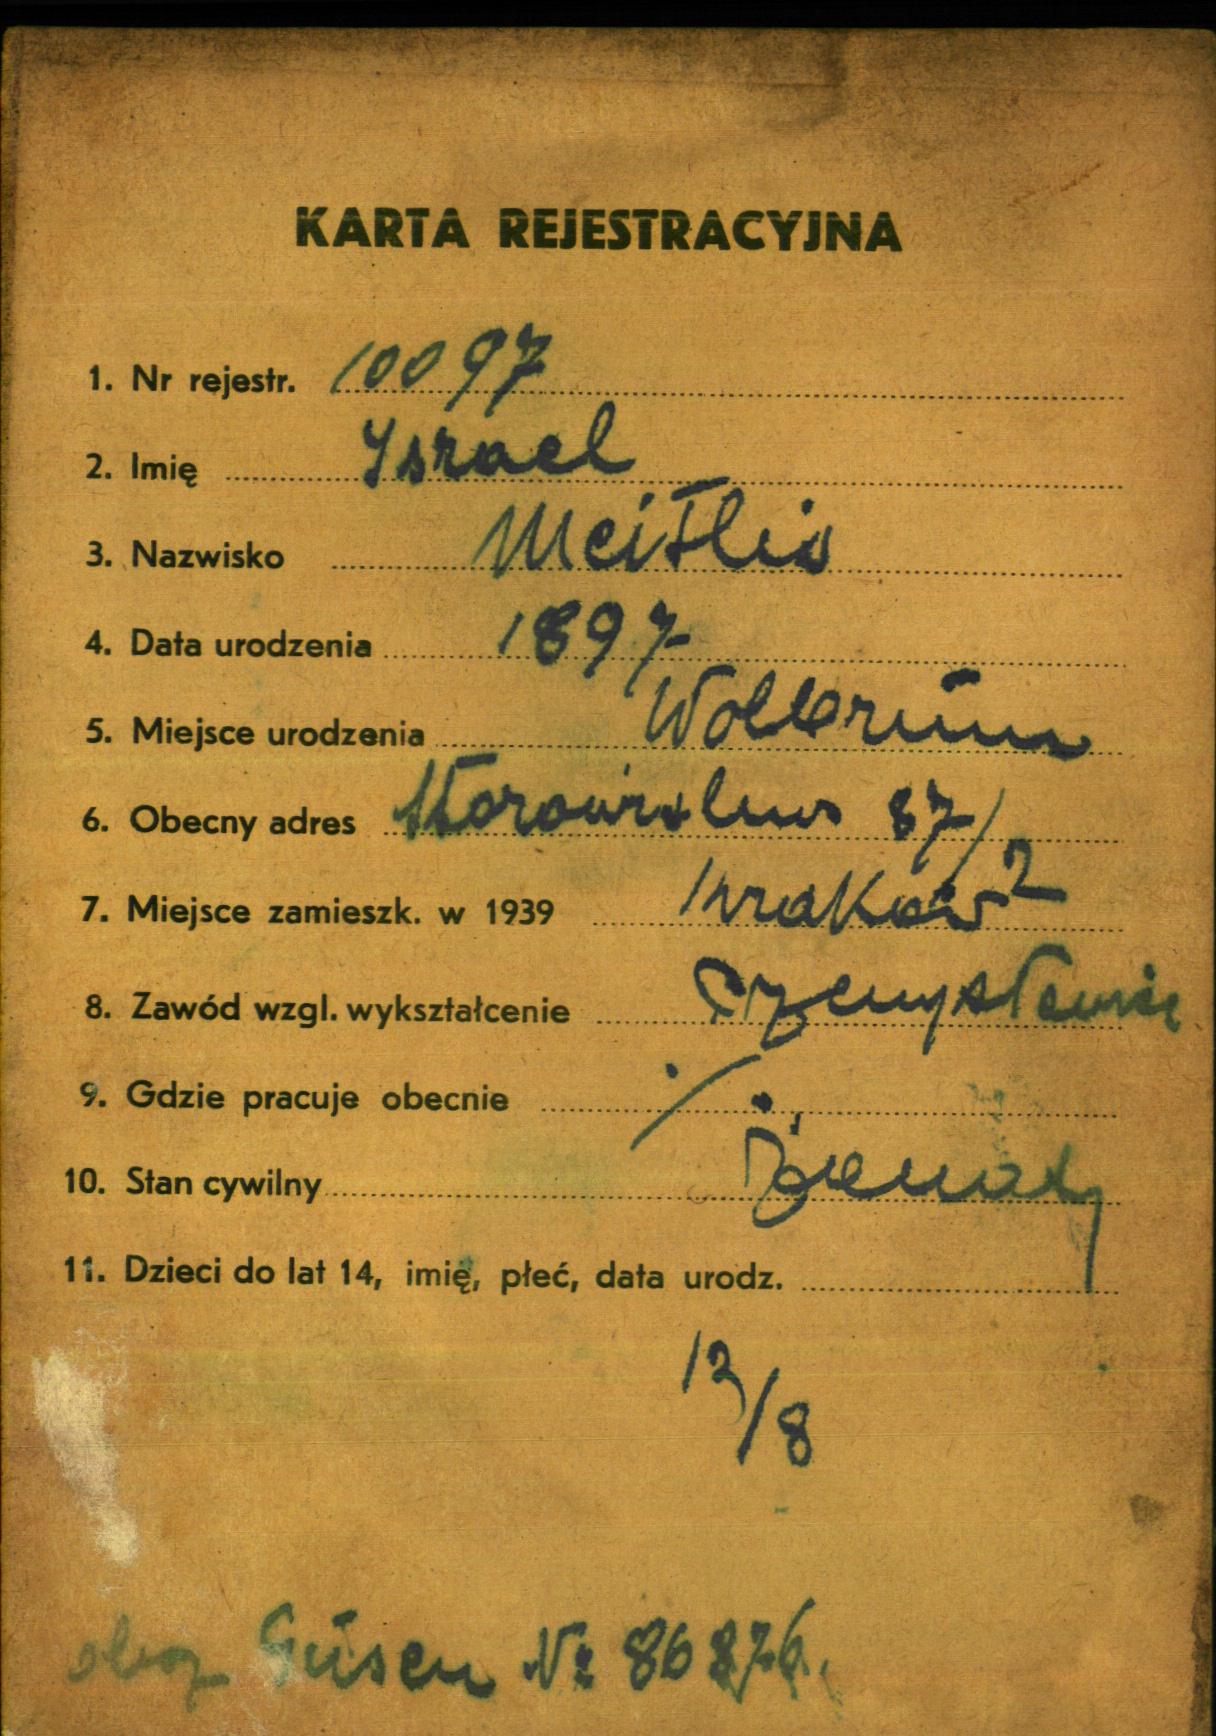 KARTA REJESTRACYJNA
1. Nr rejestr. 10097
2. Imię Israel
3. Nazwisko Meitlis
4. Data urodzenia 1897
5. Miejsce urodzenia Wolbrum
6. Obecny adres 87/2
7. Miejsce zamieszk. w 1939 Kraków
8. Zawód wzgl. wykształcenie
9. Gdzie pracuje obecnie ./.
10. Stan cywilny żonaty
11. Dzieci do lat 14, imię, płeć, data urodz.
12/8
oboz Gusen Nr 86876